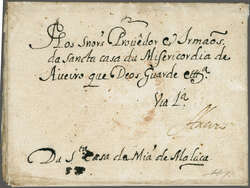 Aos Snor̃s Prouedor e Irmaõs
da sancta casa da Misericordia de
Aueiro que Deos guarde etc.ª
Via 1.ª
Da S.ta Casa de Mia de Malaca